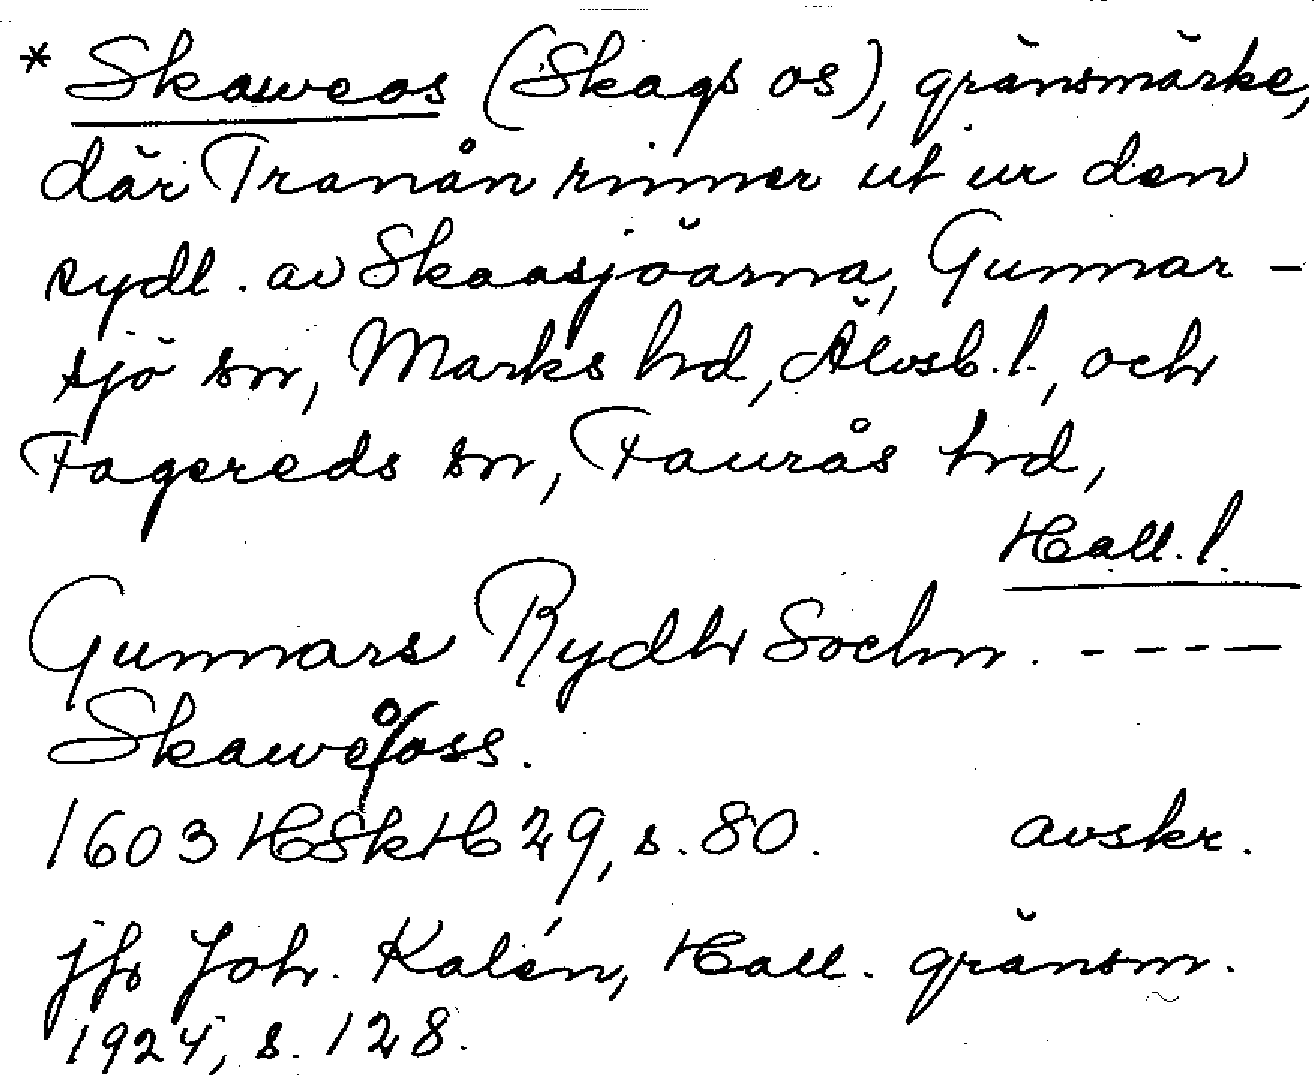 * Skaweos (Skags os), gränsmärke,
där Tranån rinner ut ur den
sydl. av Skaasjöarna, Gunnar-
sjö sn, Marks hd, Älvsb. l., och
Fagereds sn, Faurås hd,
Hall. l.
Gunnars Rydh Sochn. ----
Skawe oss.
1603 HSkH 29, s. 80. avskr.
jfr Joh. Kalén, Hall. gränsm.
1924, s. 128.